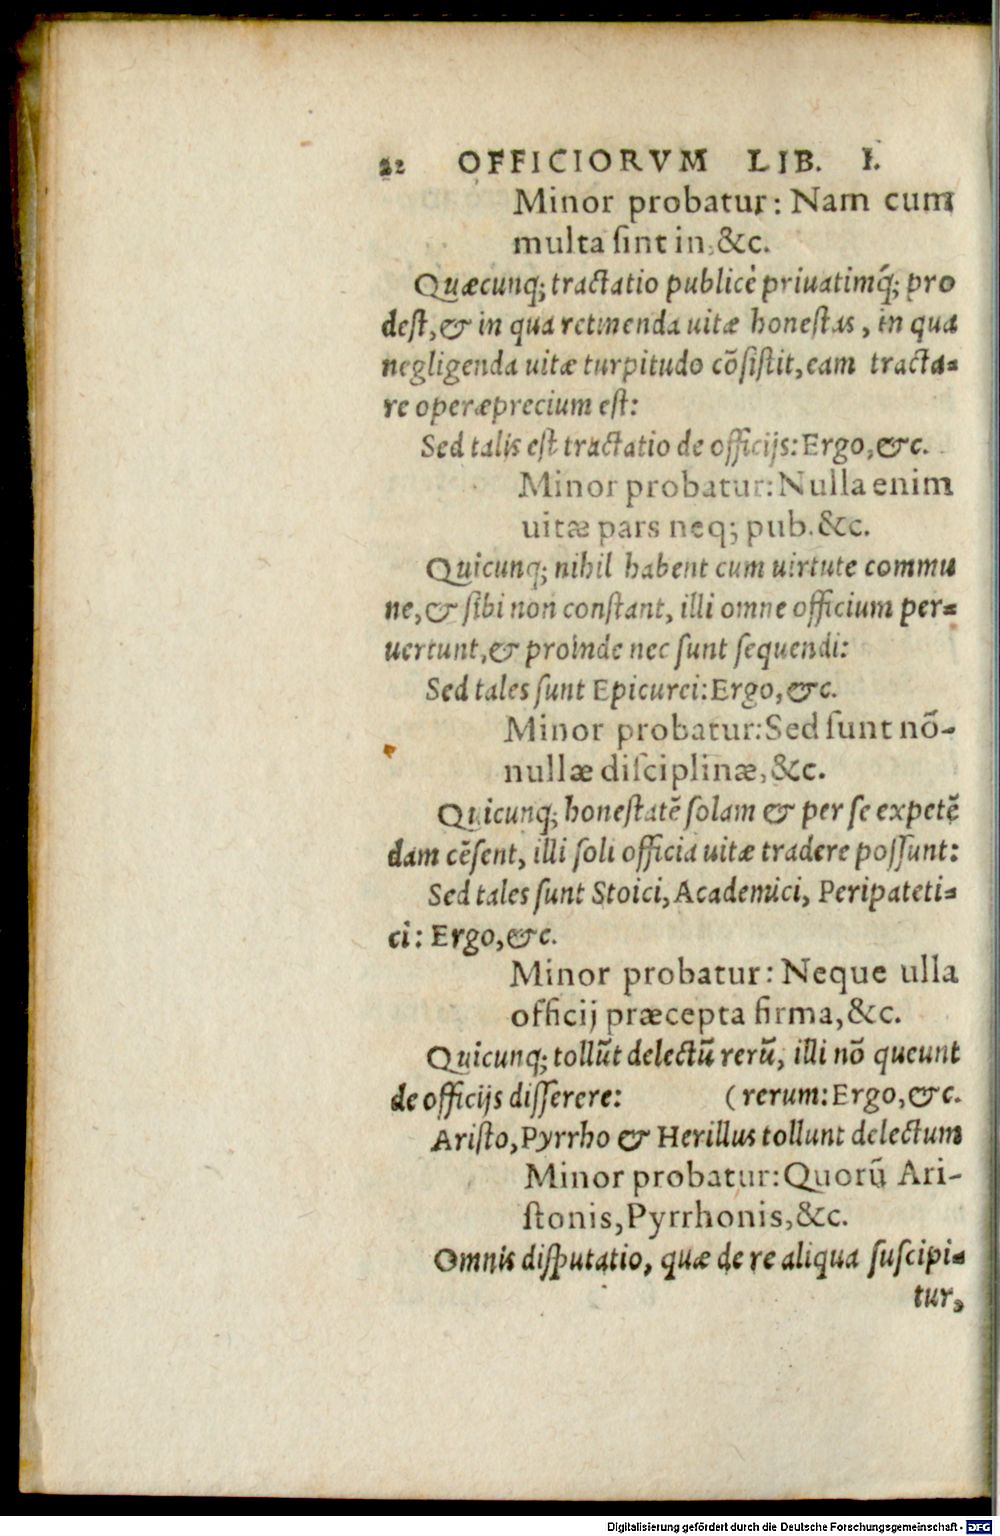 22 OFFICIORVM LIB. I.
Minor probatur: Nam cum
multa ſint in, &c.
Quæcunq; tractatio publicè priuatimq́; pro
deſt, & in qua retinenda uitæ honeſtas, in qua
negligenda uitæ turpitudo cõſiſtit, eam tracta=
re operæprecium eſt:
Sed talis eſt tractatio de officijs: Ergo, &c.
Minor probatur: Nulla enim
uitæ pars neq; pub. &c.
Quicunq; nihil habent cum uirtute commu
ne, & ſibi non conſtant, illi omne officium per=
uertunt, & proinde nec ſunt ſequendi:
Sed tales ſunt Epicurei: Ergo, &c.
Minor probatur: Sed ſunt nõ-
nullæ diſciplinæ, &c.
Quicunq; honeſtatẽ ſolam & per ſe expetẽ
dam cẽſent, illi ſoli officia uitæ tradere poſſunt:
Sed tales ſunt Stoici, Academici, Peripateti=
ci: Ergo, &c.
Minor probatur: Neque ulla
officij præcepta firma, &c.
Quicunq; tollũt delectũ rerũ, illi nõ queunt
de officijs diſſerere: (rerum: Ergo, &c.
Ariſto, Pyrrho & Herillus tollunt delectum
Minor probatur: Quorũ Ari-
ſtonis, Pyrrhonis, &c.
Omnis diſputatio, quæ de re aliqua ſuſcipi=
tur,
Digitalisierung gefördert durch die Deutsche Forschungsgemeinschaft - DFG